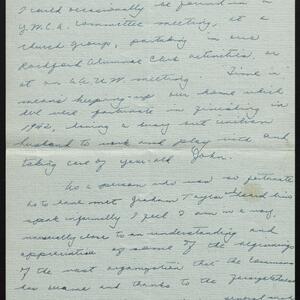 I could occasionally be found in a
Y.W.C.A. Committee meeting, at a
church group, partaking in our
Rockford Alumnae Club activities, or
at an A.A.U.W. meeting. Time
means keeping-up our home which
we were fortunate in finishing in
1942, being a busy but
husband to work and play with and
taking care of year-old John.
As a person who was so fortunate
as to have met Graham Taylor & heard him
speak informally I feel I am in a way,
unusually close to an understanding and
appreciation of some of the beginnings
of the vast organization that the Commons
has become and thanks to the